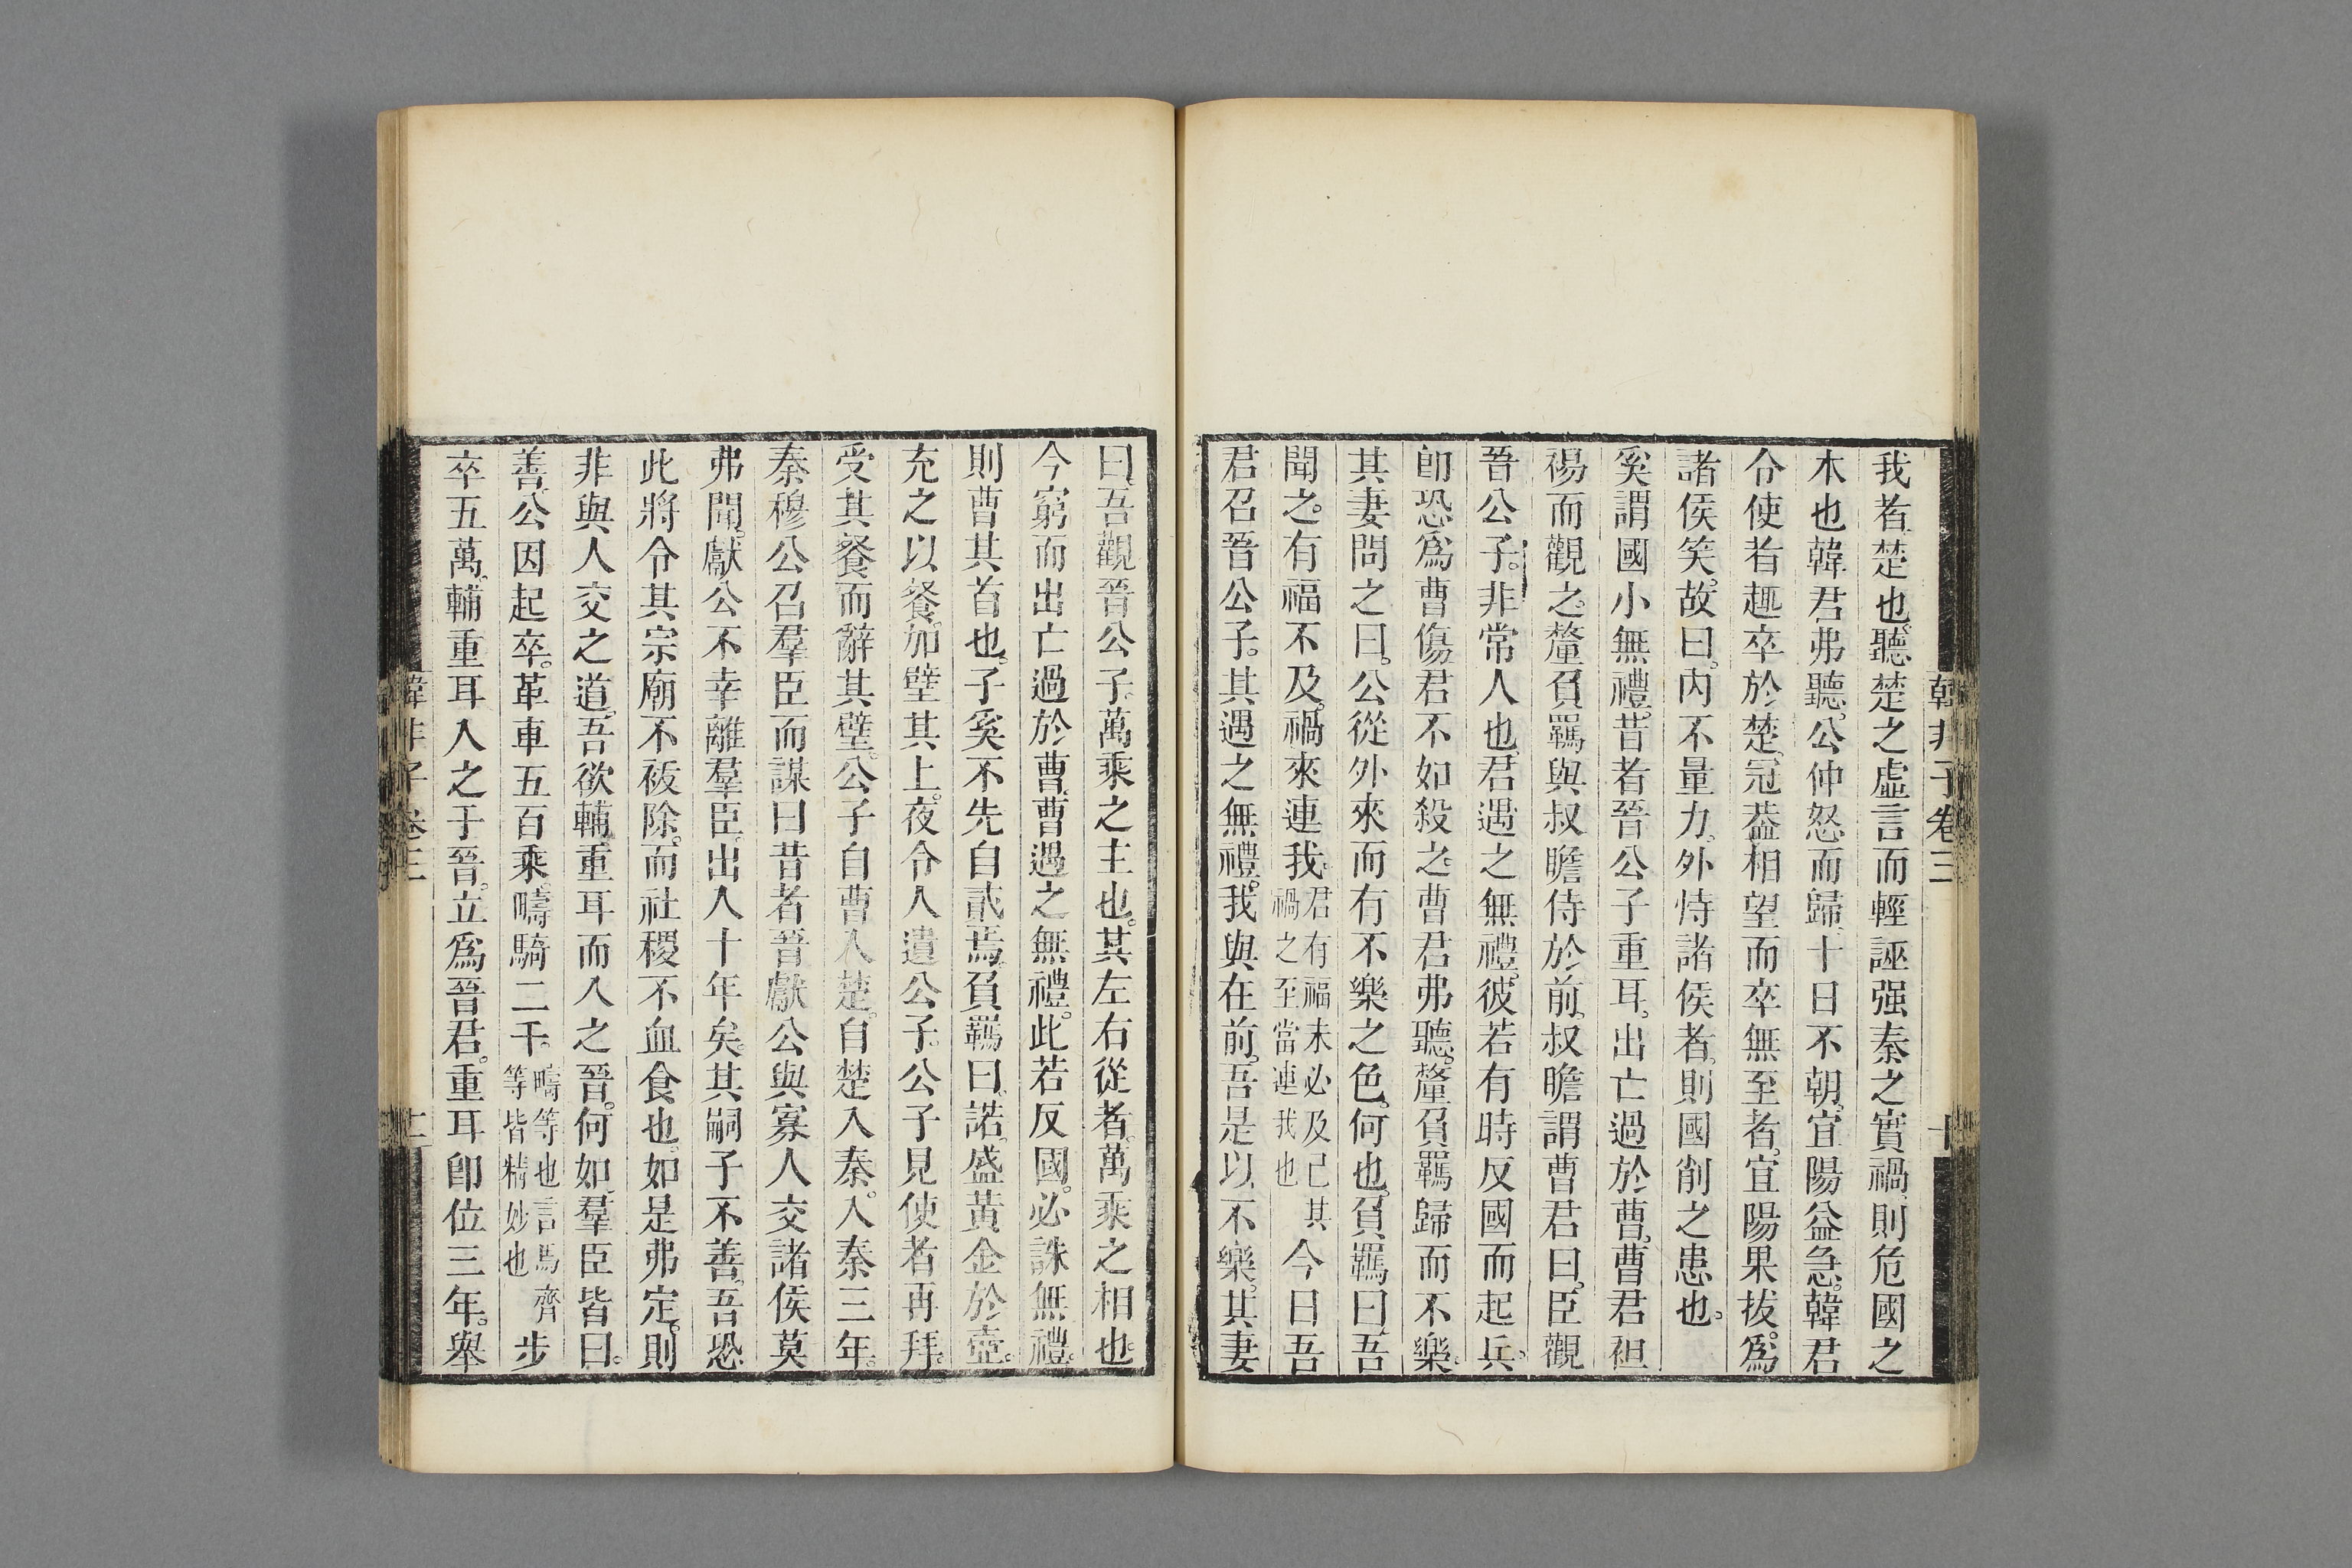 我者楚也。聽楚之虛言而輕誣强秦之實禍則危國之
本也韓君弗聽。公仲怒而歸十日不朝。宜陽益急。韓君
令使者趣卒於楚。冠葢相望而卒無至者。宜陽果拔。爲
諸侯笑。故曰。內不量力。外恃諸侯者。則國削之患也。
奚謂國小無禮。昔者晉公子重耳。出亡過於曹。曹君袒
裼而觀之。釐負羈與叔瞻侍於前。叔瞻謂曹君曰。臣觀
晉公子。非常人也。君遇之無禮。彼若有時反國而起兵。
卽恐爲曹傷君不如殺之。曹君弗聽。釐負羈歸而不樂。
其妻問之曰。公從外來而有不樂之色。何也。負羈曰。吾
聞之。有福不及。禍來連我。君有福未必及己其禍之至當連我也今日吾
君召晉公子。其遇之無禮。我與在前。吾是以不樂。其妻
韓非子卷三
曰。吾觀晉公子。萬乘之主也。其左右從者。萬乘之相也。
今窮而出亡過於曹。曹遇之無禮。此若反國。必誅無禮。
則曹其首也。子奚不先自貳焉。負羈曰。諾。盛黃金於壺。
充之以餐。加璧其上。夜令人遺公子。公子見使者再拜。
受其餐而辭其璧。公子自曹入楚。自楚入秦。入秦三年。
秦穆公召羣臣而謀曰昔者晉獻公與寡人交諸侯莫
弗聞。獻公不幸離羣臣。出入十年矣。其嗣子不善。吾恐
此將令其宗廟不祓除。而社稷不血食也。如是弗定。則
非與人交之道。吾欲輔重耳而入之晉。何如。羣臣皆曰。
善。公因起卒。革車五百乘。疇騎二千。疇等也言馬齊等皆精妙也步
卒五萬。輔重耳入之于晉。立爲晉君。重耳卽位三年。舉
韓非子卷三